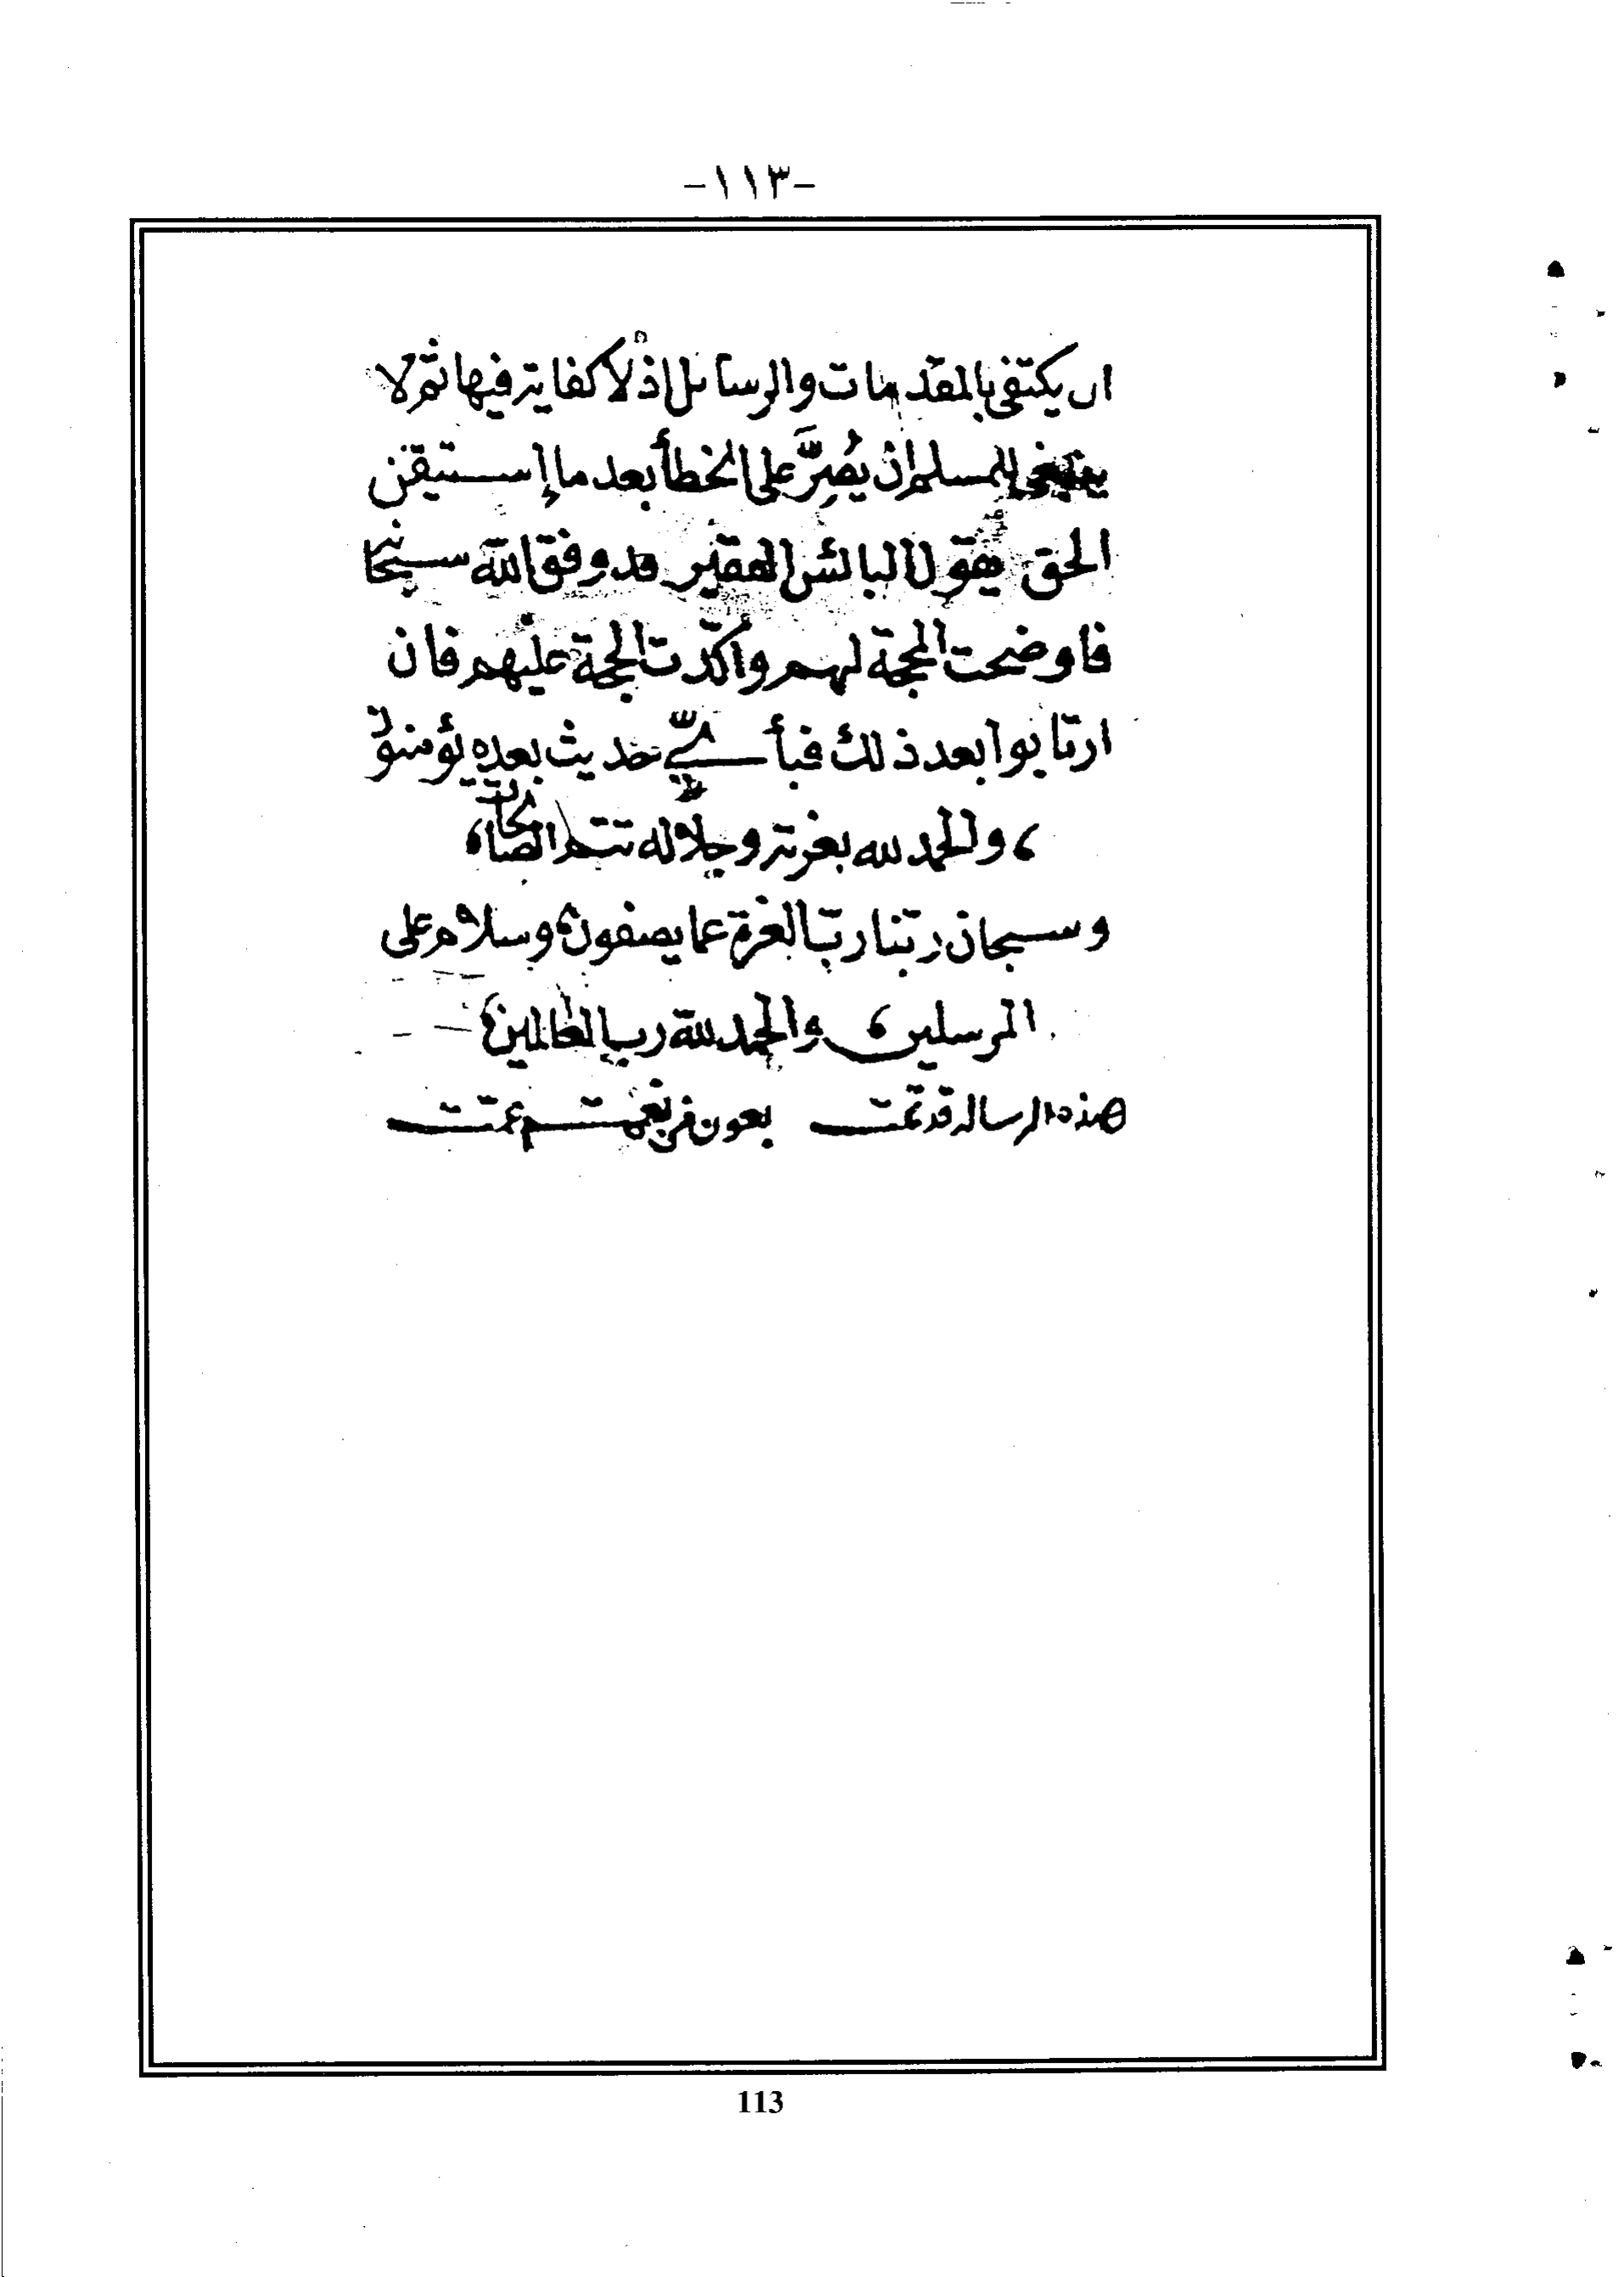 -١١٣-
ان يكتفى بالمقدمات والرسائل اذ لا كفاية فيها ثم لا
ينبغى للمسلم ان يُصِرَّ على الخطأ بعد ما إستيقن
الحق يقول البائس الفقير قد وفق الله سبحا
فاوضحت المحجة لهم واكّدت الحجة عليهم فان
ارتابوا بعد ذلك فبأىّ حديث بعده يؤمنون
، والحمد لله بعزته وجلاله تتم الصالحات،
وسبحان ربنا رب العزة عما يصفون، وسلام على
المرسلين، والحمد لله رب العالمين،
هذه الرسالة قد تمت بعون من نعمته عمت
113